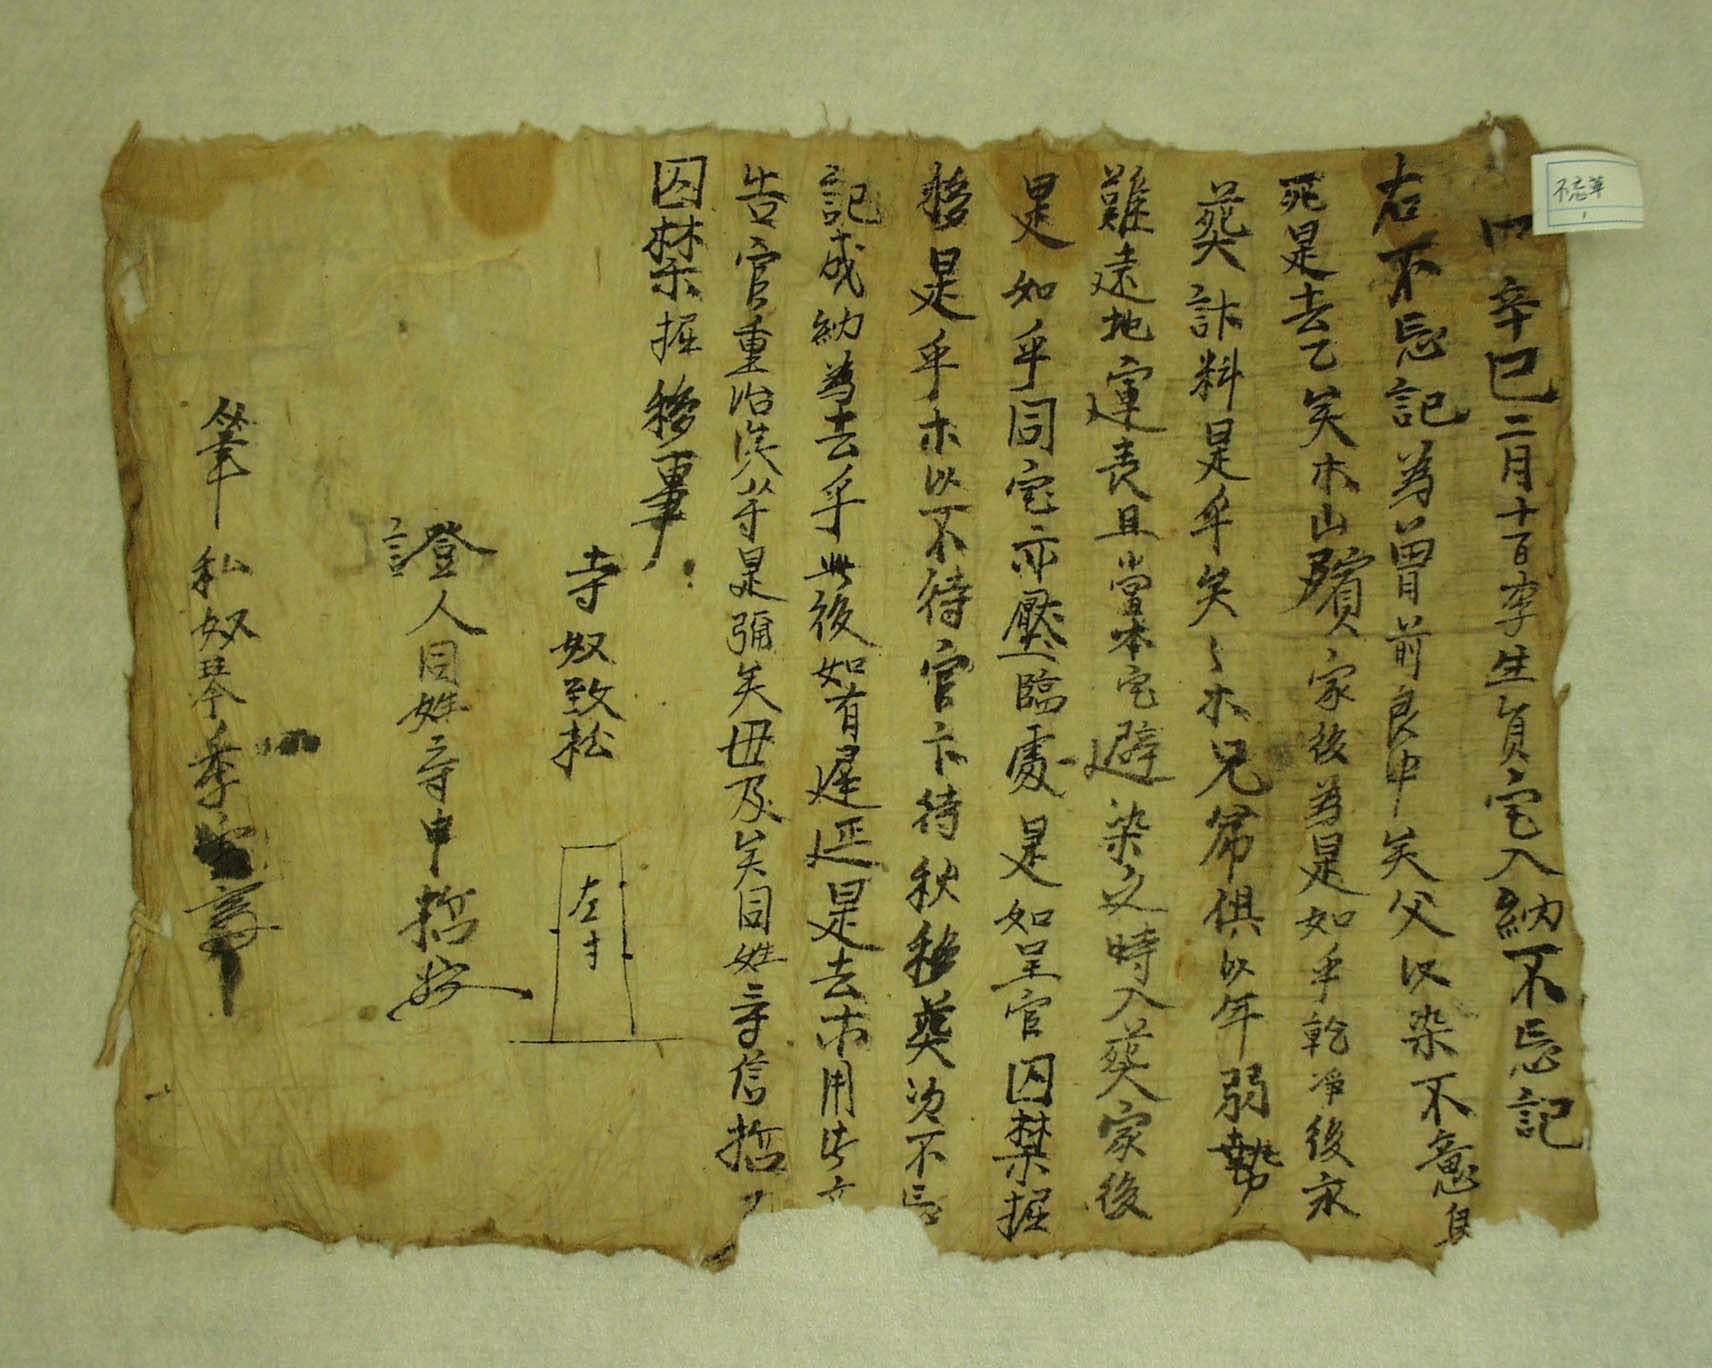 辛巳二月十一日李生員宅入納不忘記
右不忘記為曾前良中矣父以染不意身
死是去乙矣木山殯家後為是如乎乾淨後永
葬計料是乎矣〻木兄弟俱以年弱勢
難遠地運喪且當本宅避染之時入葬家後
是如乎同宅亦壓臨處是如呈官囚禁掘
移是乎木以不待官卞待秋移葬次不忘
記成納為去乎此後如有遲延是去木用此文
告官重治洪等是彌矣毋及矣同姓寺信哲
囚禁掘移事
寺奴致松
左寸
證人同姓寺申哲
筆私奴琴季
不忘草
1